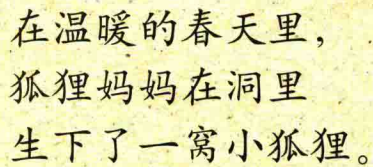 在温暖的春天里，
狐狸妈妈在洞里
生下了一窝小狐狸。